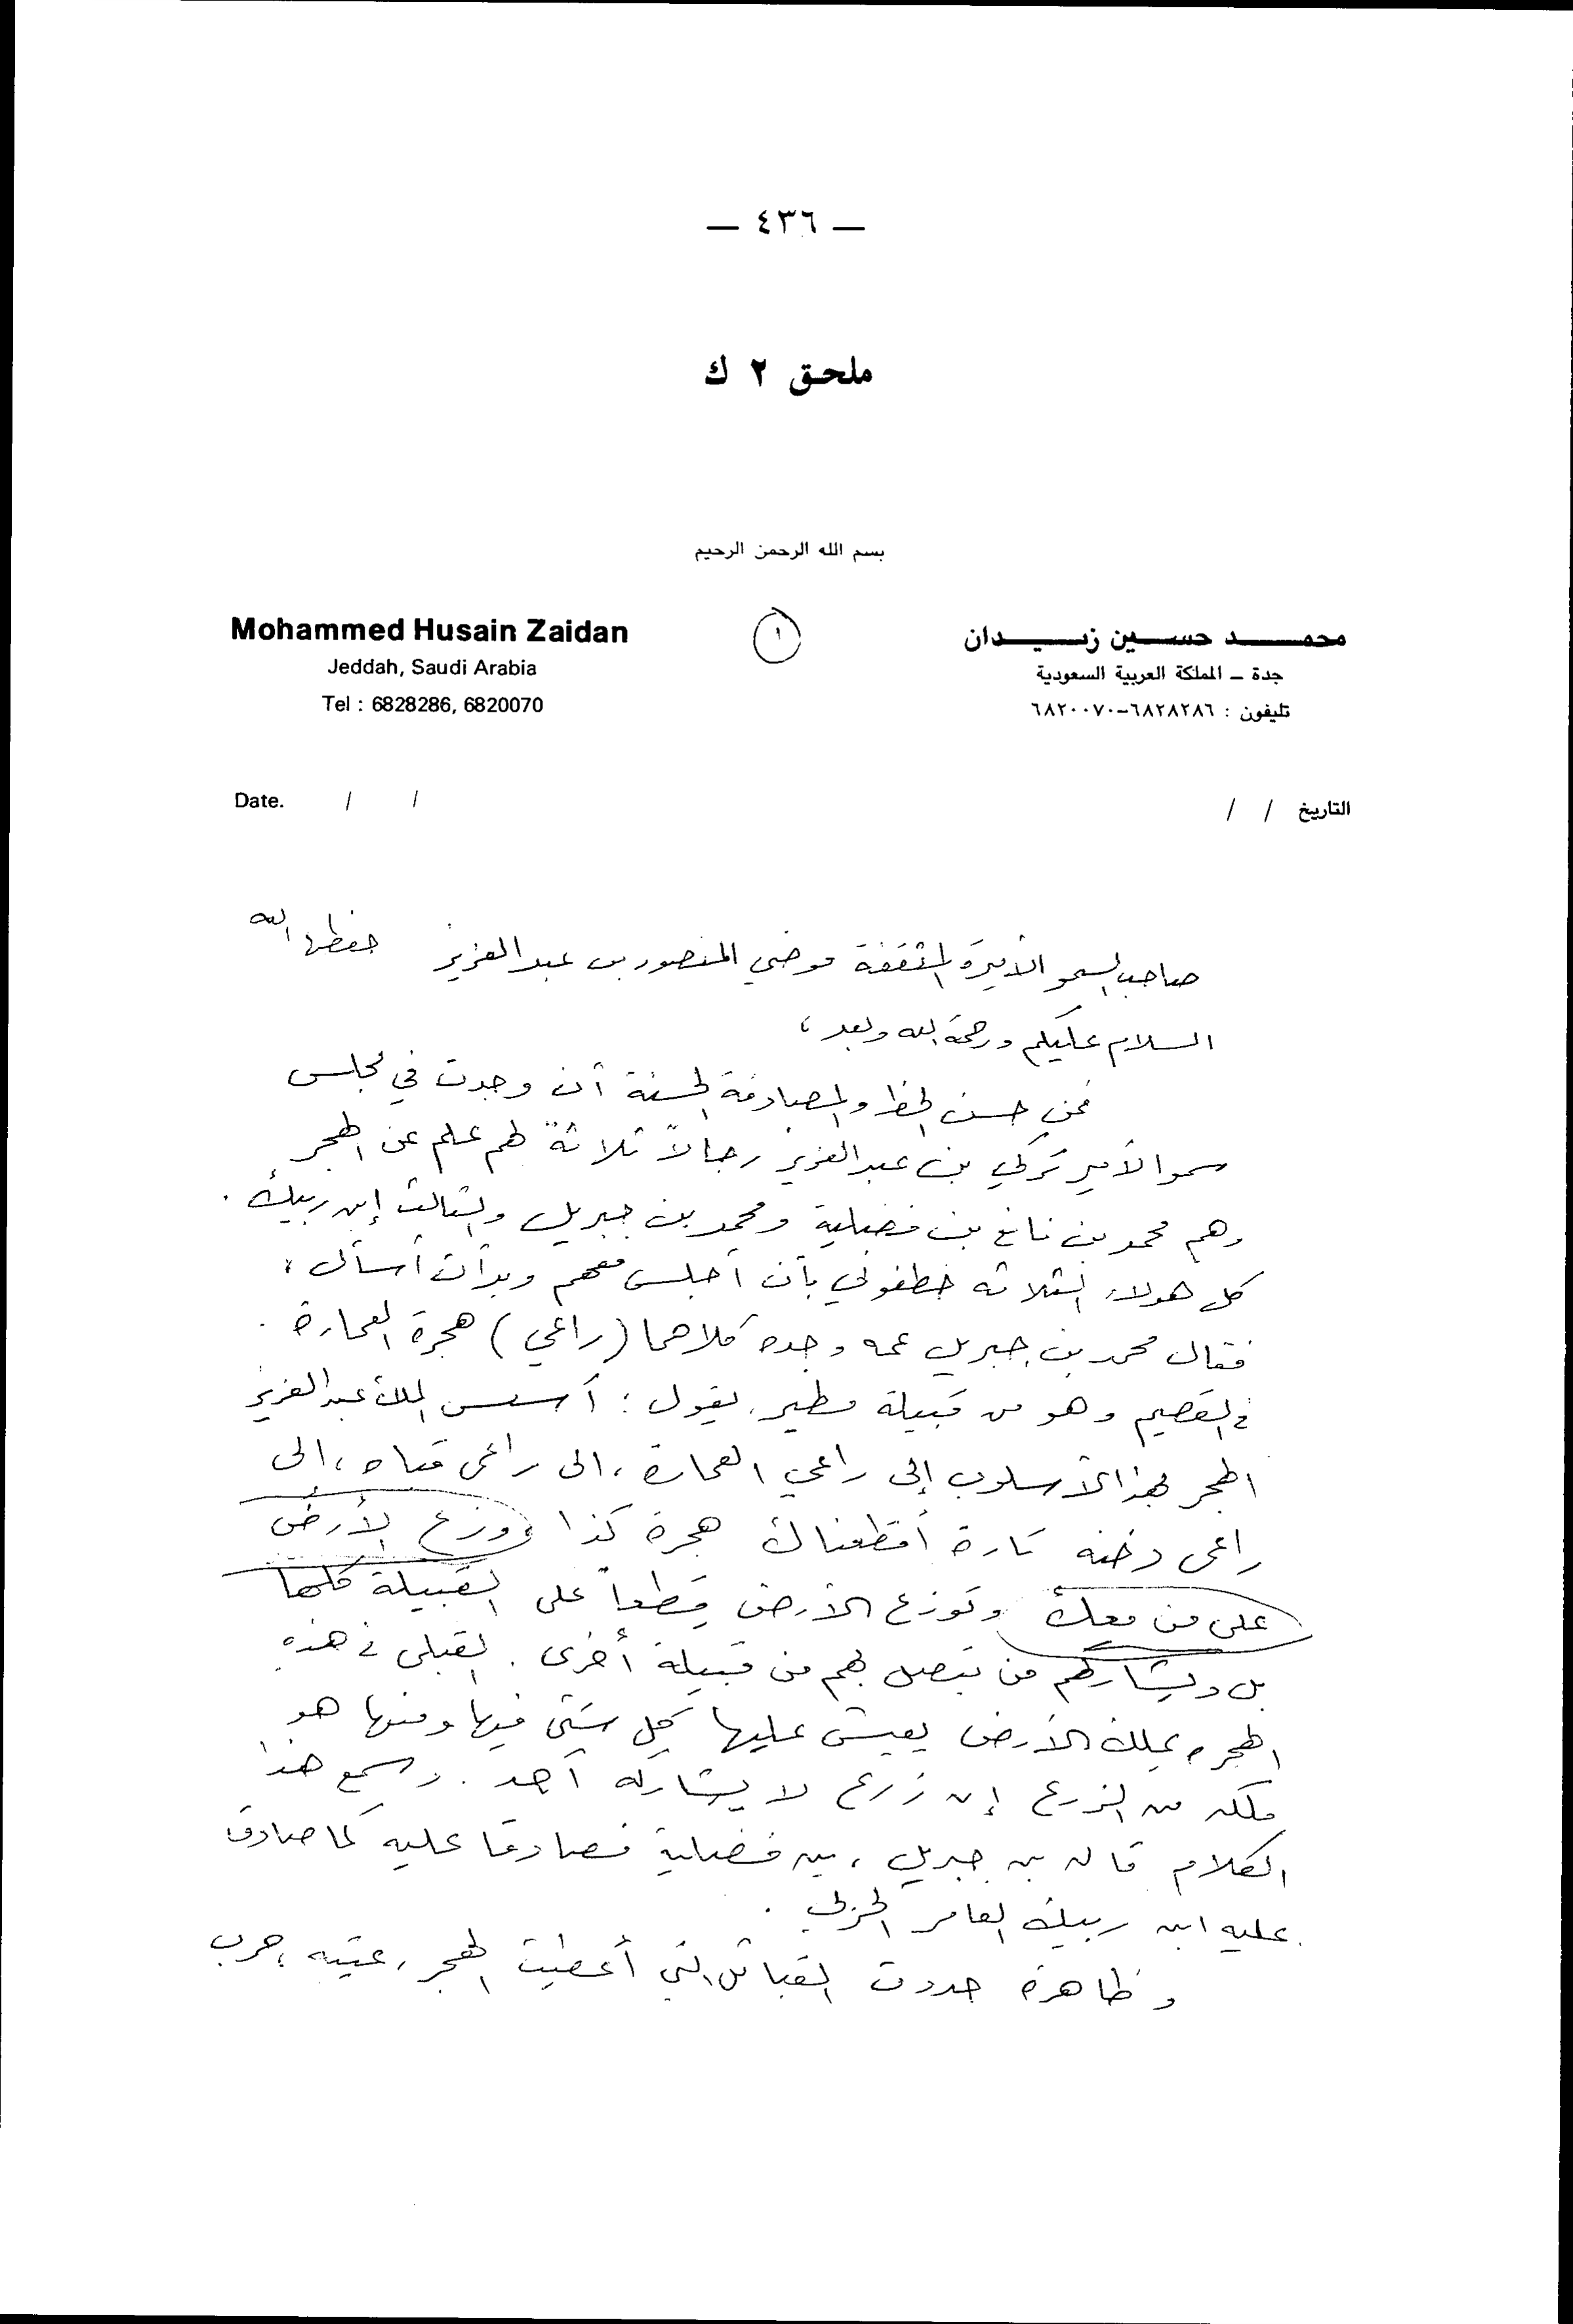 — ٤٣٦ —
ملحق ٢ ك
بسم الله الرحمن الرحيم
محمد حسين زيدان
جدة – المملكة العربية السعودية
تليفون : ٦٨٢٨٢٨٦–٦٨٢٠٠٧٠
١
Mohammed Husain Zaidan
Jeddah, Saudi Arabia
Tel : 6828286, 6820070
التاريخ / /
Date. / /
صاحب السمو الأميرة المثقفة موضي المنصور بن عبدالعزيز حفظها الله
السلام عليكم ورحمة الله وبعد ،
فمن حسن الحظ والمصادفة الحسنة أن وجدت في مجلس
سمو الأمير تركي بن عبدالعزيز رجالاً ثلاثة لهم علم عن الهجر
وهم محمد بن بن فضيلية ومحمد بن جبريل والثالث إبن ربيك .
كل هولاء الثلاثه خطفوني بأن أجلس معهم وبدأت أسأل ،
فقال محمد بن جبريل عمه وجده كلاهما (راعي) هجرة العمارة .
في القصيم وهو من قبيلة مطير يقول : أسس الملك عبدالعزيز
الهجر بهذا الأسلوب إلى راعي العمارة ، الى راعى ، الى
راعى دخنه تارة أقطعناك هجرة كذا وزع الأرض
على من معك وتوزع الأرض قطعاً على القبيلة كلها
بل ويشاركهم من يتصل بهم من قبيلة أخرى . القبلى في هذه
الهجره يملك الأرض يعيش عليها كل شيى فيها ومنها هو
ملكه من الزرع إن زرع لا يشاركه أحد . وسمع هذا
الكلام قاله بن جبريل ، بن فضيلية فصادقا عليه كما صادق
عليه ابن ربيك العامر الحزبي .
وظاهرة حدود القبائل التي أعطيت الهجر ، عتيبه ، حرب